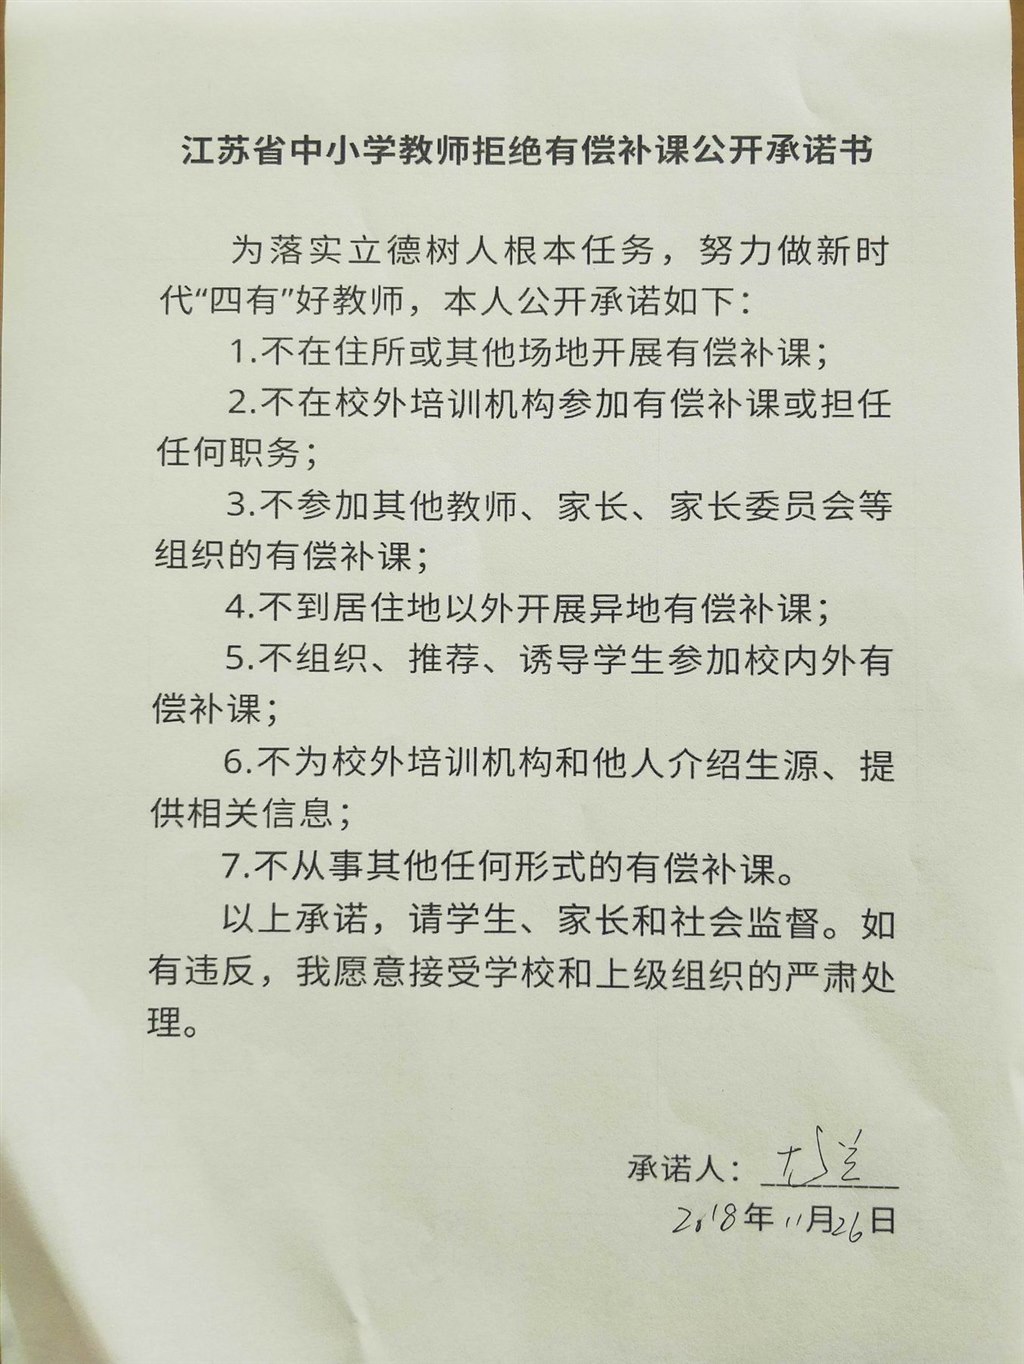 江苏省中小学教师拒绝有偿补课公开承诺书
为落实立德树人根本任务，努力做新时
代“四有”好教师，本人公开承诺如下：
1.不在住所或其他场地开展有偿补课；
2.不在校外培训机构参加有偿补课或担任
任何职务；
3.不参加其他教师、家长、家长委员会等
组织的有偿补课；
4.不到居住地以外开展异地有偿补课；
5.不组织、推荐、诱导学生参加校内外有
偿补课；
6.不为校外培训机构和他人介绍生源、提
供相关信息；
7.不从事其他任何形式的有偿补课。
以上承诺，请学生、家长和社会监督。如
有违反，我愿意接受学校和上级组织的严肃处
理。
承诺人：
2018年11月26日